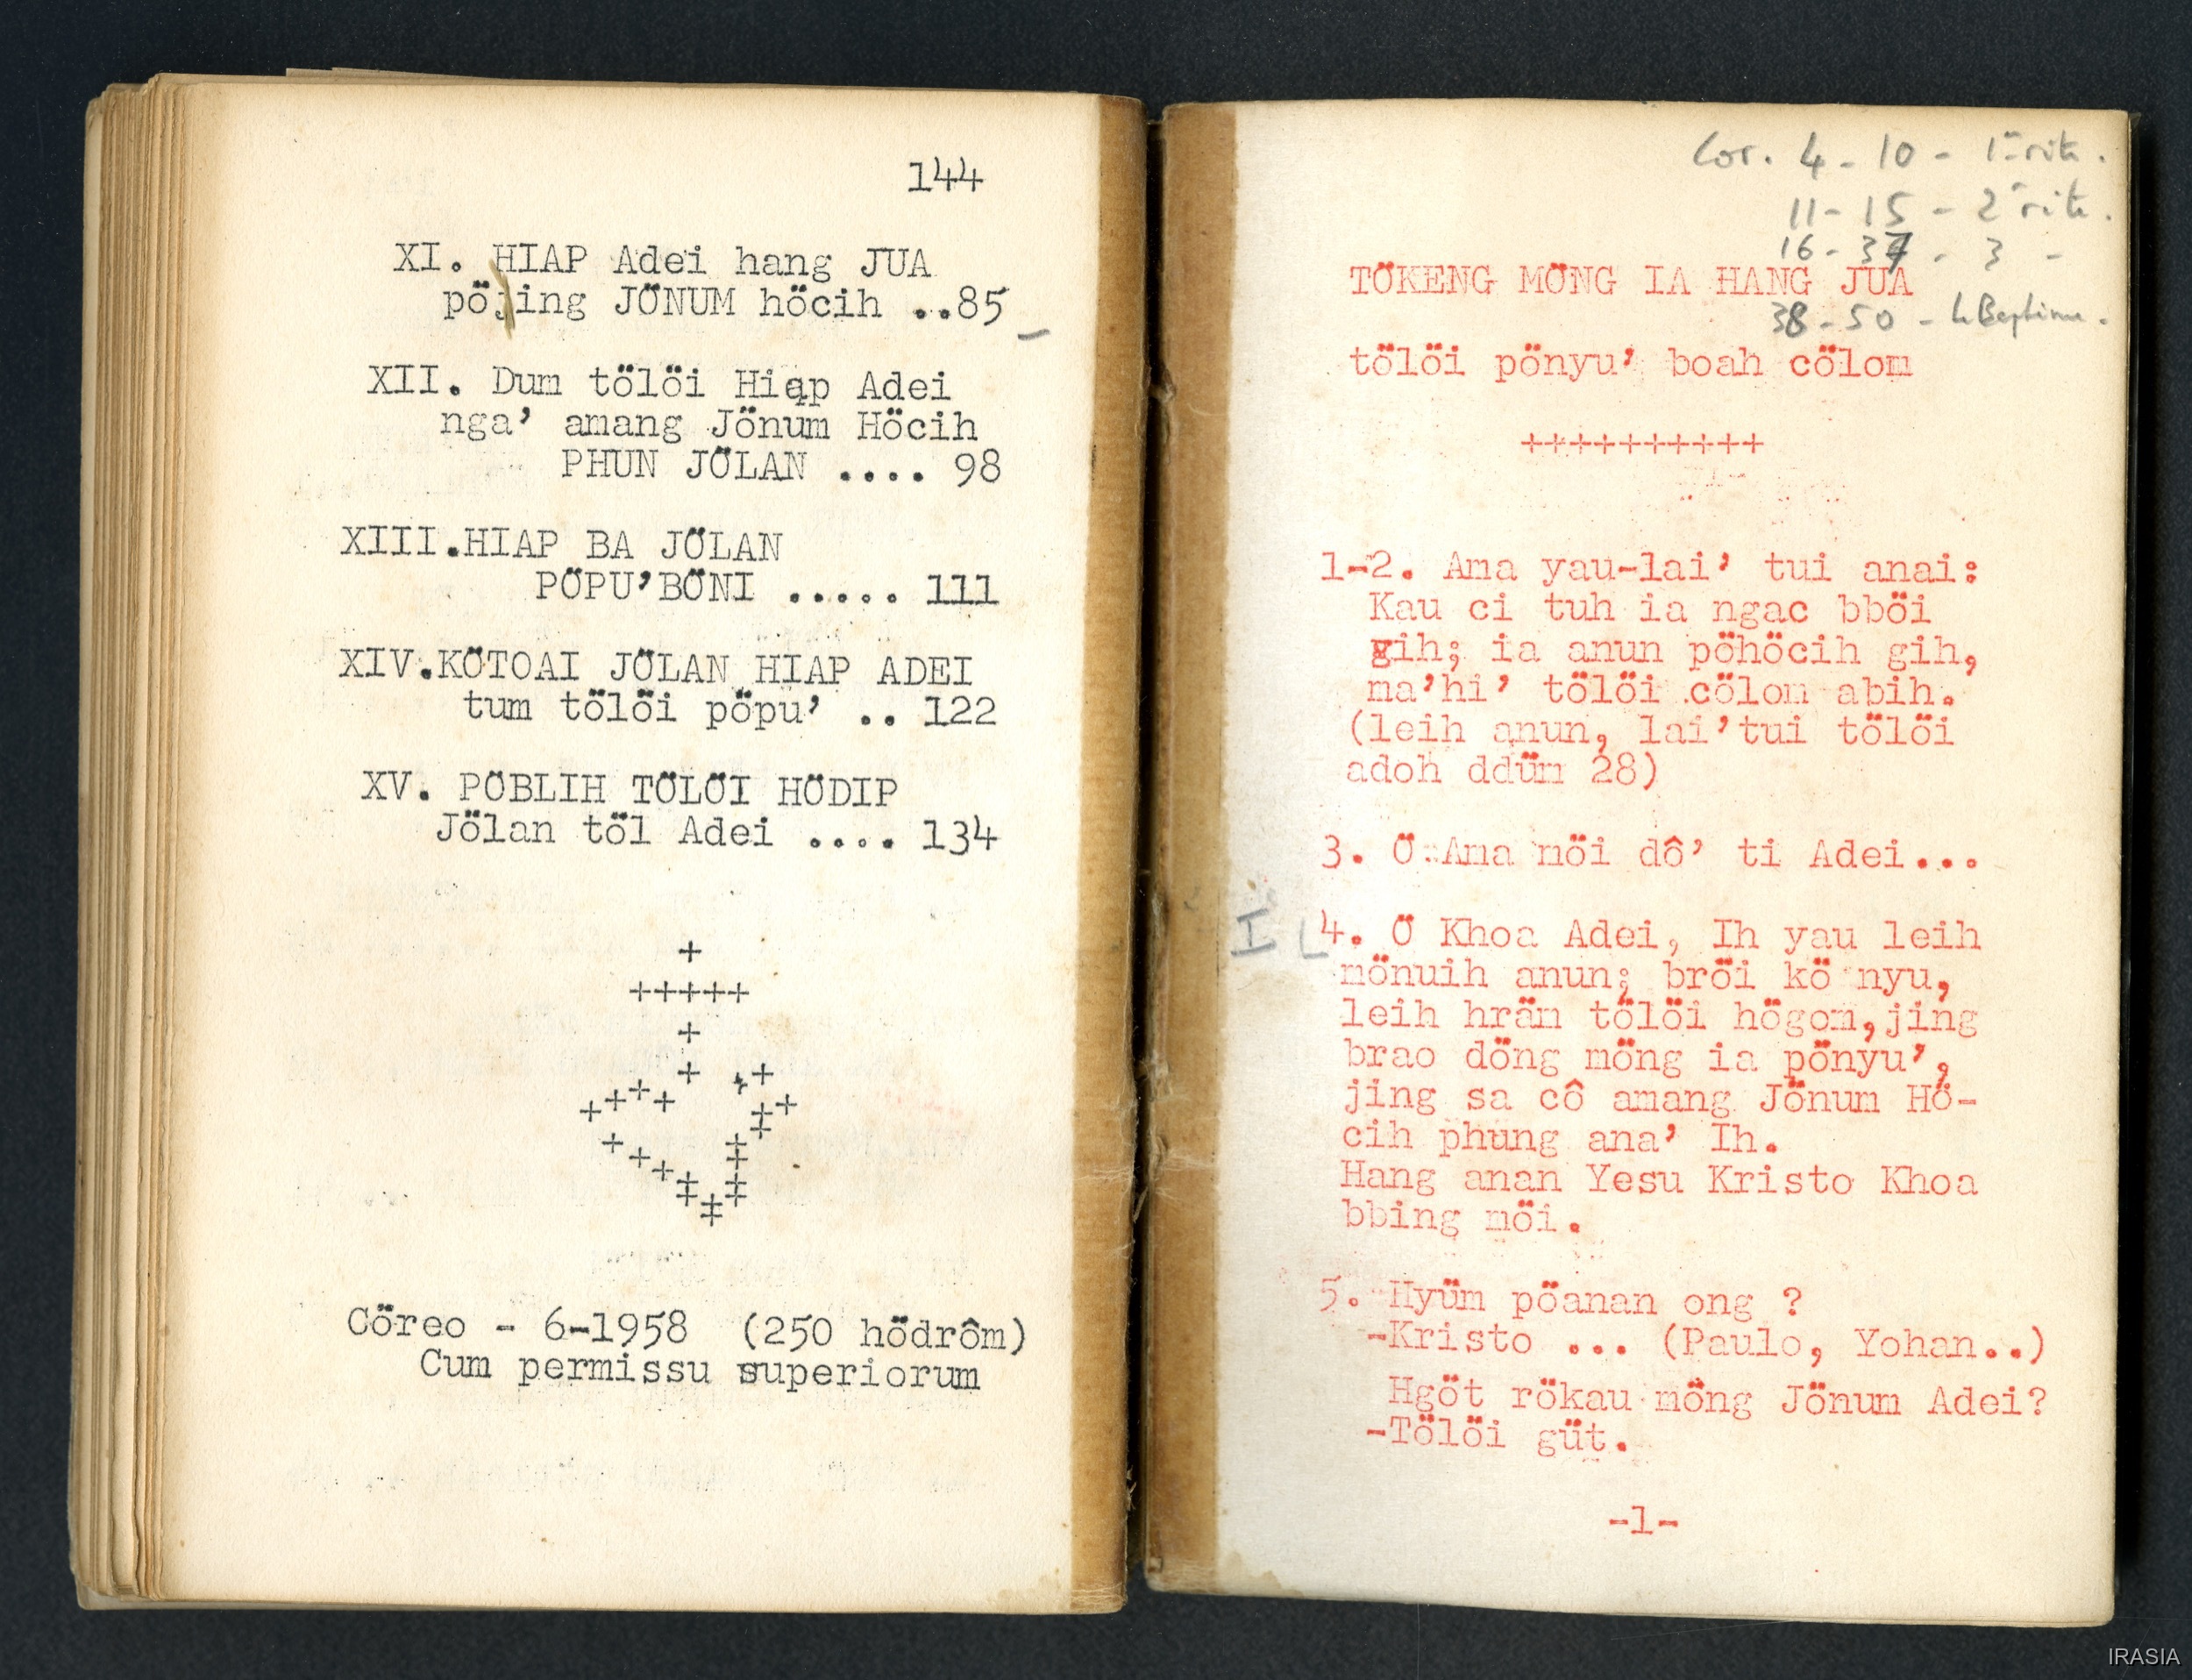 144
XI. HIAP Adei hang JUA
pöjing JÖNUM höcih ..85
XII. Dum tölöi Hiap Adei
nga' amang Jönum Höcih
PHUN JÖLAN .... 98
XIII.HIAP BA JÖLAN
PÖPU'BÖNI ..... 111
XIV.KÖTOAI JÖLAN HIAP ADEI
tum tölöi pöpu' .. 122
XV. PÖBLIH TÖLÖI HÖDIP
Jölan töl Adei .... 134
+
+++++
+
Cöreo - 6-1958 (250 hödrôm)
Cum permissu superiorum
Cor. 4-10 - 1e rite.
11-15 - 2e rite.
16-37 - 3 -
TÖKENG MÖNG IA HANG JUA
38-50 - le Baptême.
tölöi pönyu' boah cölom
++++++++++
1-2. Ama yau-lai' tui anai:
Kau ci tuh ia ngac bböi
gih; ia anun pöhöcih gih,
ma'hi' tölöi cölom abih.
(leih anun, lai'tui tölöi
adoh ddüm 28)
3. Ö Ama möi dô' ti Adei...
I
4. Ö Khoa Adei, Ih yau leih
mönuih anun; bröi kö nyu,
leih hräm tölöi högom,jing
brao döng möng ia pönyu',
jing sa cô amang Jönum Hö-
cih phung ana' Ih.
Hang anan Yesu Kristo Khoa
bbing möi.
5. Hyüm pöanan ong ?
-Kristo ... (Paulo, Yohan..)
Hgöt rökau möng Jönum Adei?
-Tölöi güt.
-1-
IRASIA